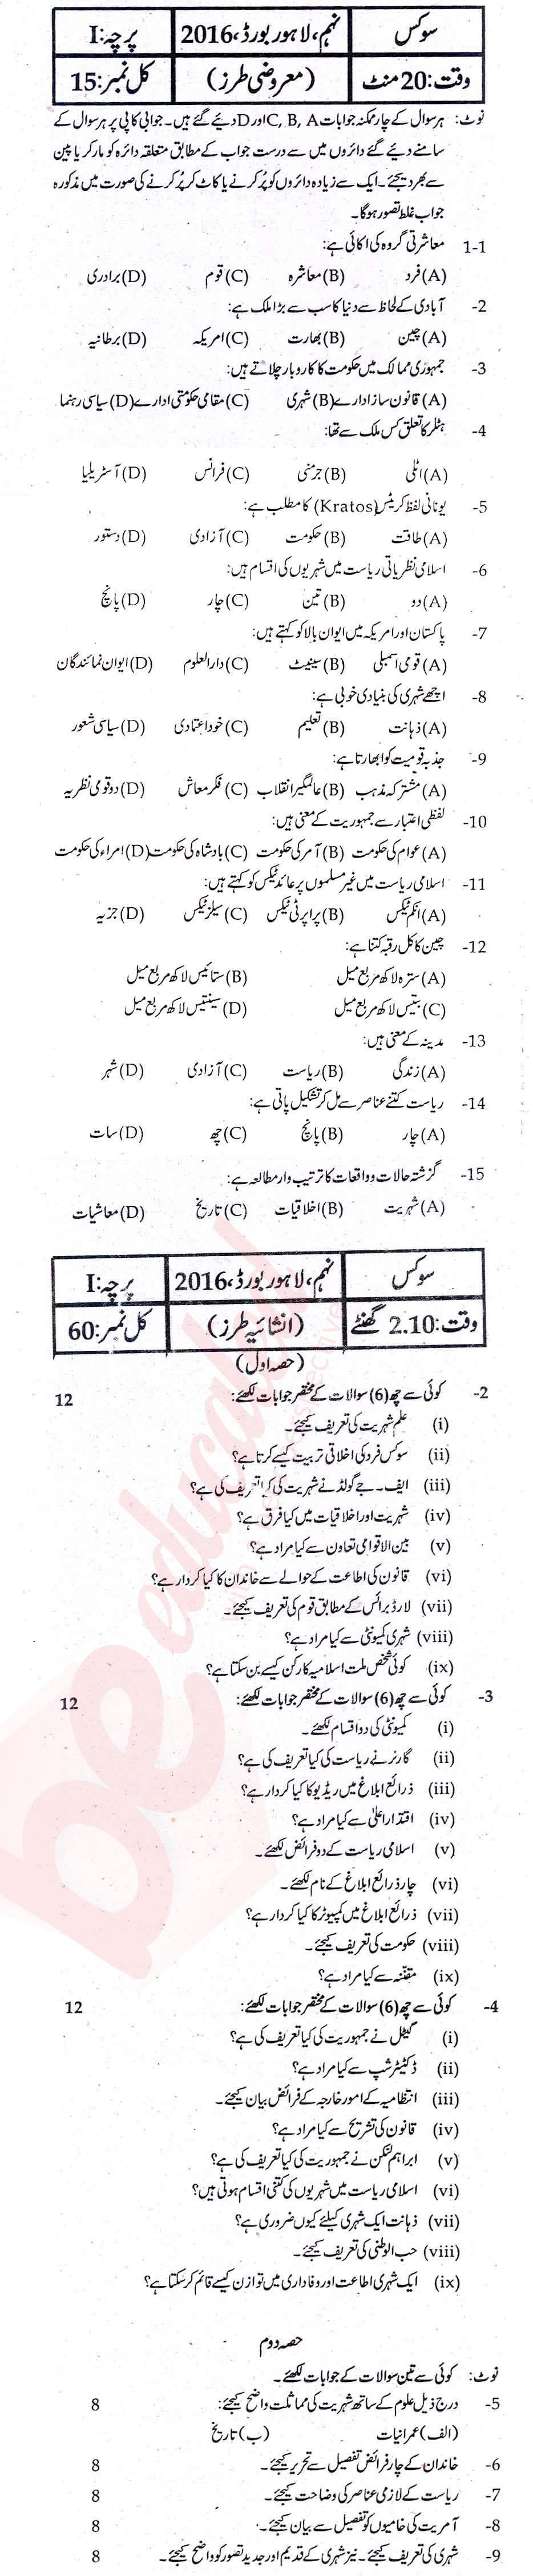 سوکس نہم، لاہور بورڈ، 2016 پرچہ: I
وقت: 20 منٹ (معروضی طرز) کل نمبر: 15
نوٹ: ہر سوال کے چار ممکنہ جوابات C, B, A اور D دیئے گئے ہیں۔ جوابی کاپی پر ہر سوال کے
سامنے دیئے گئے دائروں میں سے درست جواب کے مطابق متعلقہ دائرہ کو مارکر یا پین
سے بھر دیجئے۔ ایک سے زیادہ دائروں کو پُر کرنے یا کاٹ کر پُر کرنے کی صورت میں مذکورہ
جواب غلط تصور ہوگا۔
1-1 معاشرتی گروہ کی اکائی ہے:
(A) فرد (B) معاشرہ (C) قوم (D) برادری
-2 آبادی کے لحاظ سے دنیا کا سب سے بڑا ملک ہے:
(A) چین (B) بھارت (C) امریکہ (D) برطانیہ
-3 جمہوری ممالک میں حکومت کا کاروبار چلاتے ہیں:
(A) قانون ساز ادارے (B) شہری (C) مقامی حکومتی ادارے (D) سیاسی رہنما
-4 ہٹلر کا تعلق کس ملک سے تھا:
(A) اٹلی (B) جرمنی (C) فرانس (D) آسٹریلیا
-5 یونانی لفظ کریٹس (Kratos) کا مطلب ہے:
(A) طاقت (B) حکومت (C) آزادی (D) دستور
-6 اسلامی نظریاتی ریاست میں شہریوں کی اقسام ہیں:
(A) دو (B) تین (C) چار (D) پانچ
-7 پاکستان اور امریکہ میں ایوان بالا کو کہتے ہیں:
(A) قومی اسمبلی (B) سینیٹ (C) دارالعلوم (D) ایوان نمائندگان
-8 اچھے شہری کی بنیادی خوبی ہے:
(A) ذہانت (B) تعلیم (C) خود اعتمادی (D) سیاسی شعور
-9 جذبہ قومیت کو ابھارتا ہے:
(A) مشترکہ مذہب (B) عالمگیر انقلاب (C) فکر معاش (D) دو قومی نظریہ
-10 لفظی اعتبار سے جمہوریت کے معنی ہیں:
(A) عوام کی حکومت (B) آمر کی حکومت (C) بادشاہ کی حکومت (D) امراء کی حکومت
-11 اسلامی ریاست میں غیر مسلموں پر عائد ٹیکس کو کہتے ہیں:
(A) انکم ٹیکس (B) پراپرٹی ٹیکس (C) سیلز ٹیکس (D) جزیہ
-12 چین کا کل رقبہ کتنا ہے:
(A) سترہ لاکھ مربع میل (B) ستائیس لاکھ مربع میل
(C) بتیس لاکھ مربع میل (D) سینتیس لاکھ مربع میل
-13 مدینہ کے معنی ہیں:
(A) زندگی (B) ریاست (C) آزادی (D) شہر
-14 ریاست کتنے عناصر سے مل کر تشکیل پاتی ہے:
(A) چار (B) پانچ (C) چھ (D) سات
-15 گزشتہ حالات و واقعات کا ترتیب وار مطالعہ ہے:
(A) شہریت (B) اخلاقیات (C) تاریخ (D) معاشیات
سوکس نہم، لاہور بورڈ، 2016 پرچہ: I
وقت: 2.10 گھنٹے (انشائیہ طرز) کل نمبر: 60
(حصہ اول)
-2 کوئی سے چھ (6) سوالات کے مختصر جوابات لکھئے: 12
(i) علم شہریت کی تعریف کیجئے۔
(ii) سوکس فرد کی اخلاقی تربیت کیسے کرتا ہے؟
(iii) ایف۔ جے گولڈ نے شہریت کی کیا تعریف کی ہے؟
(iv) شہریت اور اخلاقیات میں کیا فرق ہے؟
(v) بین الاقوامی تعاون سے کیا مراد ہے؟
(vi) قانون کی اطاعت کے حوالے سے خاندان کا کیا کردار ہے؟
(vii) لارڈ برائس کے مطابق قوم کی تعریف کیجئے۔
(viii) شہری کمیونٹی سے کیا مراد ہے؟
(ix) کوئی شخص ملت اسلامیہ کا رکن کیسے بن سکتا ہے؟
-3 کوئی سے چھ (6) سوالات کے مختصر جوابات لکھئے: 12
(i) کمیونٹی کی دو اقسام لکھئے۔
(ii) گارنر نے ریاست کی کیا تعریف کی ہے؟
(iii) ذرائع ابلاغ میں ریڈیو کا کیا کردار ہے؟
(iv) اقتدار اعلیٰ سے کیا مراد ہے؟
(v) اسلامی ریاست کے دو فرائض لکھئے۔
(vi) چار ذرائع ابلاغ کے نام لکھئے۔
(vii) ذرائع ابلاغ میں کمپیوٹر کا کیا کردار ہے؟
(viii) حکومت کی تعریف کیجئے۔
(ix) مقننہ سے کیا مراد ہے؟
-4 کوئی سے چھ (6) سوالات کے مختصر جوابات لکھئے: 12
(i) گیٹل نے جمہوریت کی کیا تعریف کی ہے؟
(ii) ڈکٹیٹر شپ سے کیا مراد ہے؟
(iii) انتظامیہ کے امور خارجہ کے فرائض بیان کیجئے۔
(iv) قانون کی تشریح سے کیا مراد ہے؟
(v) ابراہم لنکن نے جمہوریت کی کیا تعریف کی ہے؟
(vi) اسلامی ریاست میں شہریوں کی کتنی اقسام ہوتی ہیں؟
(vii) ذہانت ایک شہری کیلئے کیوں ضروری ہے؟
(viii) حب الوطنی کی تعریف کیجئے۔
(ix) ایک شہری اطاعت اور وفاداری میں توازن کیسے قائم کر سکتا ہے؟
حصہ دوم
نوٹ: کوئی سے تین سوالات کے جوابات لکھئے۔
-5 درج ذیل علوم کے ساتھ شہریت کی مماثلت واضح کیجئے: 8
(الف) عمرانیات (ب) تاریخ
-6 خاندان کے چار فرائض تفصیل سے تحریر کیجئے۔ 8
-7 ریاست کے لازمی عناصر کی وضاحت کیجئے۔ 8
-8 آمریت کی خامیوں کو تفصیل سے بیان کیجئے۔ 8
-9 شہری کی تعریف کیجئے۔ نیز شہری کے قدیم اور جدید تصور کو واضح کیجئے۔ 8